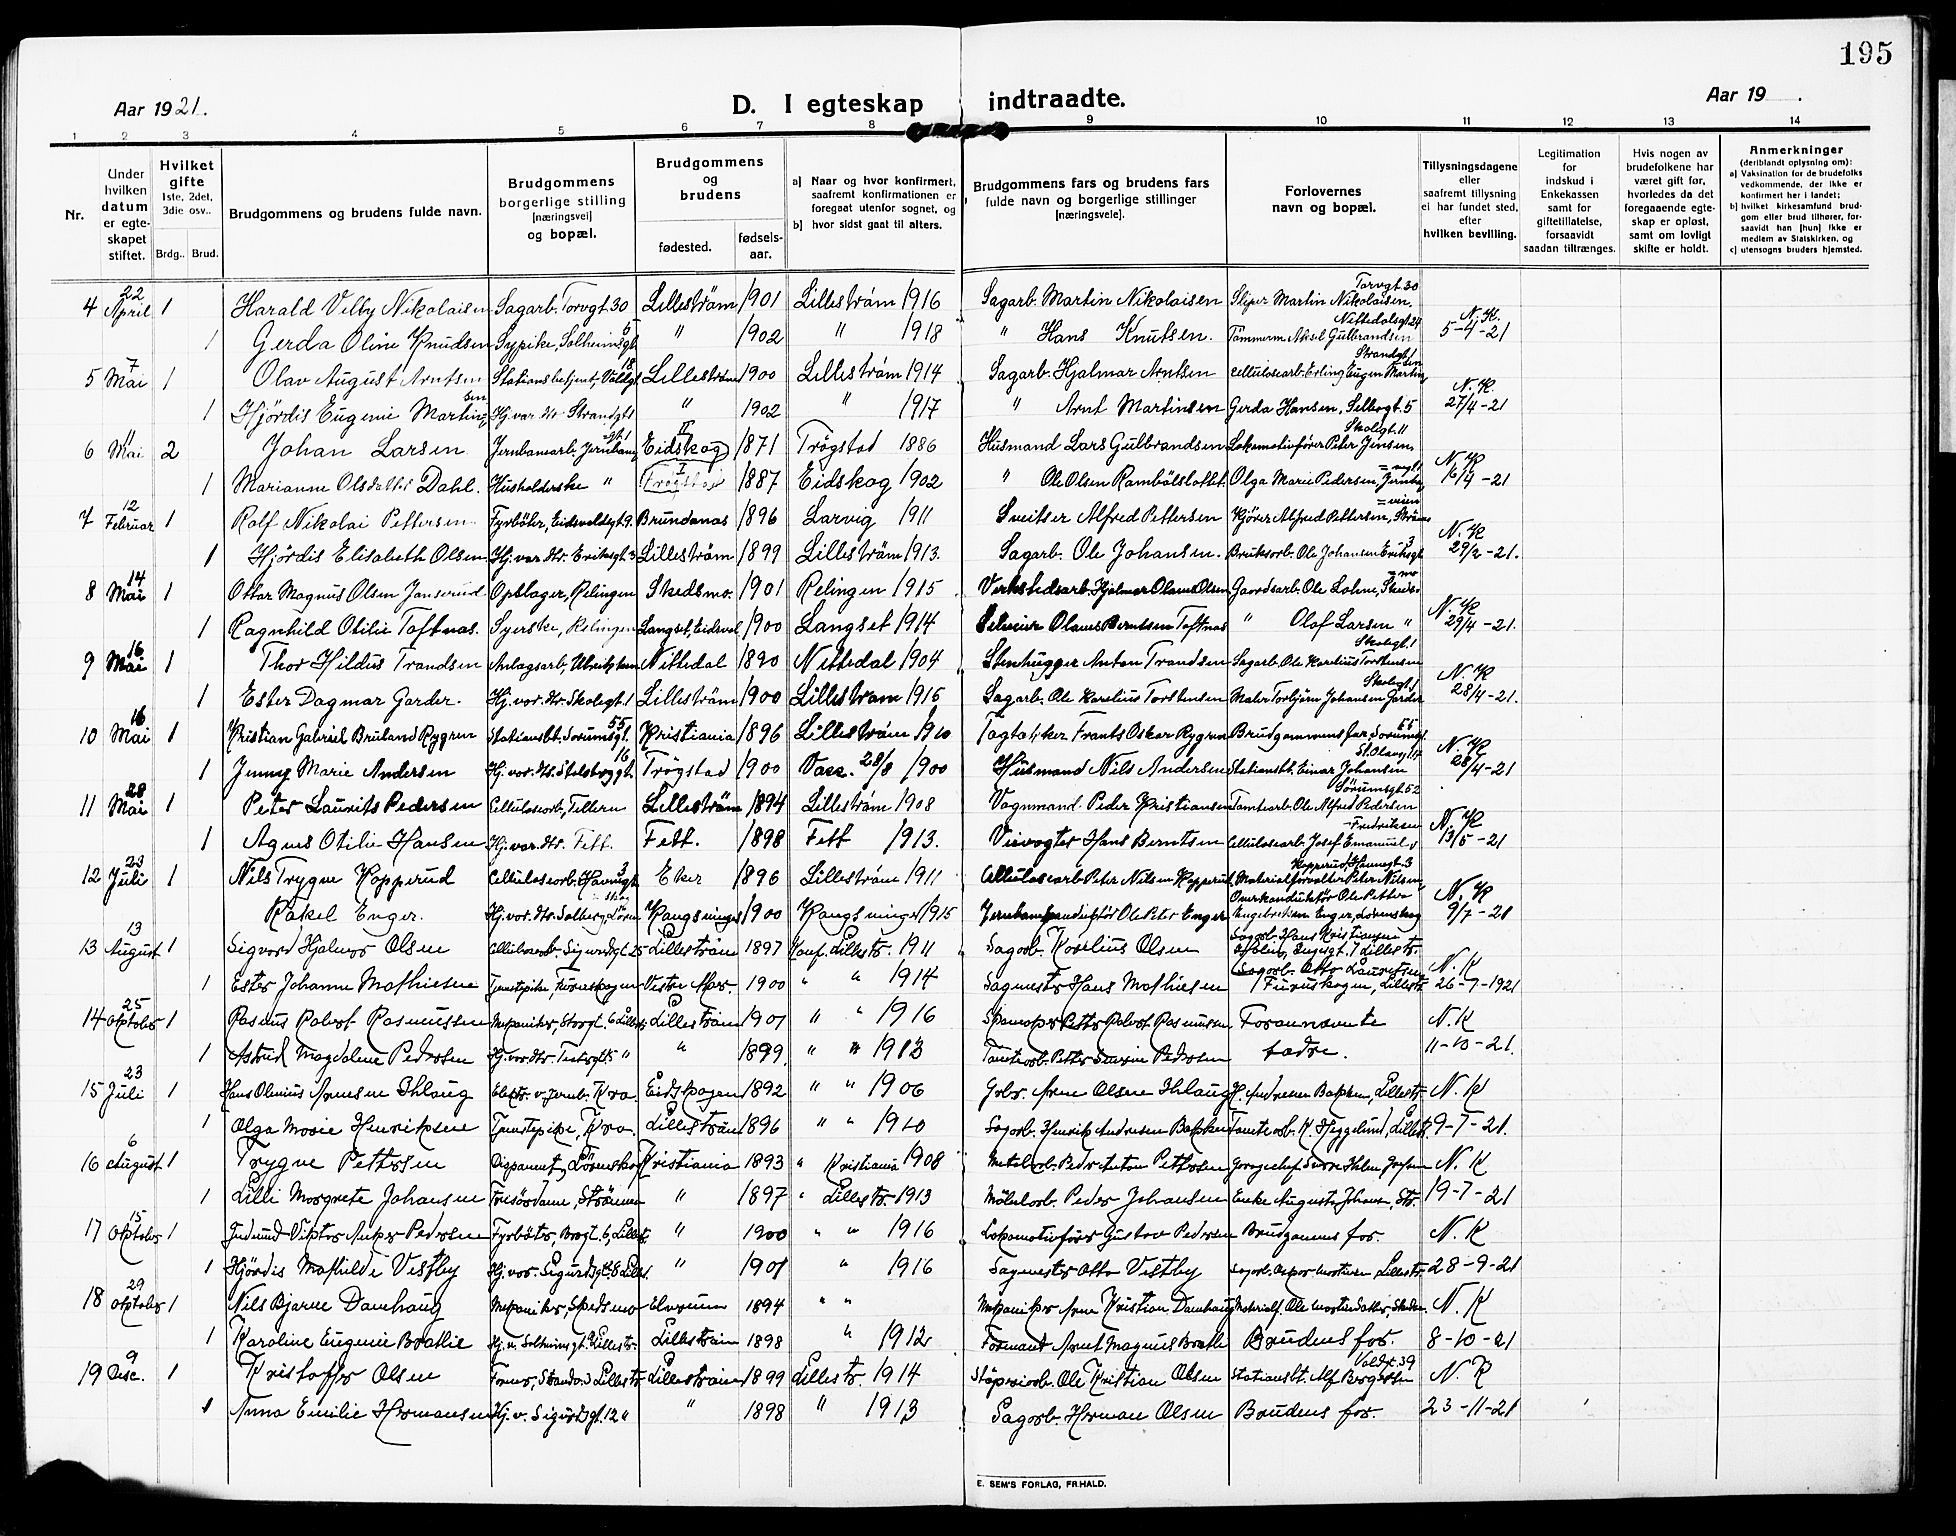 195
Aar 1921.
D. I egteskap indtraadte.
Aar 19 .
1 2 3 4 5 6 7 8 9 10 11 12 13 14
Nr.
Under hvilken datum er egteskapet stiftet.
Hvilket gifte 1ste, 2det, 3die osv..
Brdg.. Brud.
Brudgommens og brudens fulde navn.
Brudgommens borgerlige stilling [næringsvei] og bopæl.
Brudgommens og brudens
fødested. fødsels-aar.
a) Naar og hvor konfirmert, saafremt konfirmationen er foregaat utenfor sognet, og
b) hvor sidst gaat til alters.
Brudgommens fars og brudens fars fulde navn og borgerlige stillinger [næringsveie].
Forlovernes navn og bopæl.
Tillysningsdagene eller saafremt tillysning ei har fundet sted, efter hvilken bevilling.
Legitimation for indskud i Enkekassen samt for giftetillatelse, forsaavidt saadan tiltrænges.
Hvis nogen av brudefolkene har været gift før, hvorledes da det foregaaende egteskap er opløst, samt om lovligt skifte er holdt.
Anmerkninger (deriblandt oplysning om): a) Vaksination for de brudefolks vedkommende, der ikke er konfirmert her i landet; b) hvilket kirkesamfund brudgom eller brud tilhører, forsaavidt han [hun] ikke er medlem av Statskirken, og c) utensogns bruders hjemsted.
4 22 April 1 Harald Velby Nikolaisen Sagarb. Torvgt. 30 Lilleström 1901 Lilleström 1916 Sagarb. Martin Nikolaisen Sliper Martin Nikolaisen, Torvgt 30 N. K.
1 Gerda Oline Knudsen Sypike, Solheimsgt 5 " 1902 " 1918 " Hans Knutsen. Tömmerm. Aksel Gulbrandsen Nittedalsgt 24 5-4-21
5 7 Mai 1 Olav August Arntsen Stationsbetjent, Voldgt. 18 Lilleström 1900 Lilleström 1914 Sagarb. Hjalmar Arntsen Cellulosearb. Erling Eugen Martinsen Strandgt 1 N. K.
1 Hjördis Eugenie Martinsen Hj. vær. dtr. Strandgt 1 " 1902 " 1917 " Arnt Martinsen Gerda Hansen, 5 27/4-21
6 11 Mai 2 Johan Larsen Jernbanearb. Jernbanegt 1 Eidskog II 1871 Trögstad 1886 Husmand Lars Gulbrandsen Lokomotivförer Peter Jensen, Skolegt. 11 N. K
1 Marianne Olsdatter Dahl. Husholderske " Trögstad I 1887 Eidskog 1902 " Ole Olsen Olga Marie Pedersen, 16/4-21
7 12 Februar 1 Rolf Nikolai Pettersen Fyrböter, Eidsvoldsgt 9. Brunlanæs 1896 Larvig 1911 Sveitser Alfred Pettersen Kjörer Alfred Pettersen, N. K
1 Hjördis Elisabeth Olsen Hj. vær. dtr. Eriksgt. 3 Lilleström 1899 Lilleström 1913. Sagarb. Ole Johansen. Bruksarb. Ole Johansen Eriksgt 3 29/2-21.
8 14 Mai 1 Ottar Magnus Olsen Janserud Oplager, Relingen Skedsmo. 1901 Relingen 1915 Verkstedsarb. Hjalmar Olaus Olsen Gaardsarb. Ole Lohne, Skedsmo N. K
1 Ragnhild Otilie Toftnæs. Syerske, Relingen Langset, Eidsvol 1900 Langset 1914 Olaus Berntsen Toftnæs " Olaf Larsen " 29/4-21.
9 16 Mai 1 Thor Hildus Trandsen Anlægsarb., Nittedal 1890 Nittedal 1904 Stenhugger Anton Trandsen Sagarb. Ole Karelius Torstensen Skolegt. 1 N. K
1 Ester Dagmar Garder. Hj. vær. dtr. Skolegt. 1 Lilleström 1900 Lilleström 1915 Sagarb. Ole Karelius Torstensen Maler Torbjörn Johansen Garder Skolegt. 1 28/4-21.
10 16 Mai 1 Kristian Gabriel Bruland Rygren Stationsbt. Sorumsgt. 55 Kristiania 1896 Lilleström 1910 Tagtækker Frants Oskar Rygren Brudgommens far, Sorumsgt. 55 N. K
1 Jenny Marie Andersen Hj. vær. dtr. 16 Trögstad 1900 Vacc. 28/8 1900 Husmand Nils Andersen Stationsbt. Einar Johansen St. Olavsgt. 17 28/4-21
11 28 Mai 1 Peter Laurits Pedersen Cellulosearb., Lilleström 1894 Lilleström 1908 Vognmand. Peder Kristiansen Tomtearb. Ole Alfred Pedersen Sörumsgt. 52 N. K
1 Agnes Otilie Hansen Hj. vær. dtr. Fett. Fett. 1898 Fett 1913. Veivogter Hans Berntsen Cellulosearb. Josef Emanuel Fredriksen 13/5-21
12 23 Juli 1 Nils Trygve Kopperud Cellulosearb. Havnegt 3 Eker 1896 Lilleström 1911 Cellulosearb Peter Nilsen Kopperud Materialforvalter Peter Nilsen Kopperud, Havnegt. 3 N. K
Rakel Enger. Hj. vær. dtr. Solberg, Kongsvinger 1900 Kongsvinger 1915 Jernbanekonduktör Ole Peter Enger Overkonduktör Ole Petter Engebretsen Enger, Lörenskog 9/7-21
13 13 August 1 Sigvard Hjalmar Olsen Cellulosearb. Sigurdsgt. 25 Lilleström 1897 Konf. Lillestr. 1911 Sagarb. Karelius Olsen Sagarb. Hans Kristiansen Engesgt. 7 Lillestr. N. K
1 Ester Johanne Mathiesen Tjenestepike, Furuskogen Vestre Aker. 1900 " " 1914 Sagmester Hans Mathiesen Sagarb. Otto Lauritsen Furuskogen, Lillestr. 26-7-1921
14 25 Oktober 1 Rasmus Robert Rasmussen Mekaniker, Storgt. 6 Lillestr. Lilleström 1901 " " 1916 Petter Robert Rasmussen Foranevnte N. K
1 Astrid Magdalene Pedersen Hj. vær dtr " " 1899. " " 1913 Tomtearb. Petter Severin Pedersen fædre. 11-10-21.
15 23 Juli 1 Hans Olenius Arnesen Ihlaug v. Jernb. Kra. Eidskogen 1892 " " 1906 Gbr. Arne Olsen Ihlaug H. Andresen Bakken, Lillestr. N. K
1 Olga Marie Henriksen Tjenestepike, Kra. Lilleström 1896 " " 1910 Sagarb. Henrik Andresen Bakken Tomtearb. K. Heggelund, Lillestr. 9-7-21.
16 6 August 1 Trygve Pettersen Lörenskog Kristiania 1893 " Kristiania 1908 Metalarb. Peder Anton Pettersen N. K
1 Lilli Margrete Johansen Frisördame, Strömmen " 1897 " Lillestr. 1913 Möbelarb. Peder Johansen Enke Augusta Johansen, Str. 19-7-21
17 15 Oktober 1 Viktor Anker Pedersen Fyrböter, Brogt. 6, Lillestr. " 1900 " " 1916 Lokomotivförer Gustav Pedersen Brudgomens far. N. K
1 Hjördis Mathilde Vestby Hj. vær. Sigurdsgt. 8 Lillestr. " 1901 " 1916 Sagmester Otto Vestby Sagarb. Oskar Mortensen Lillestr. 28-9-21
18 29 Oktober 1 Nils Bjarne Damhaug Mekaniker, Skedsmo Elverum 1894 " " Mekaniker Arne Kristian Damhaug N. K
1 Karoline Eugenie Brathe Hj. v. Solheimsgt. Lillestr. Lilleström 1898 " 1912 Formand Arnt Magnus Brathe Brudens far. 8-10-21
19 9 Dec. 1 Kristoffer Olsen Former, Strandv. 3 Lillestr. Lilleström 1899 Lillestr. 1914 Ole Kristian Olsen Stationsbt. Alf Borgersen Voldgt. 39 N. K
1 Anna Emilie Hermansen Hj. v. Sigurdsgt. 12 " " 1898 " 1913 Sagarb. Herman Olsen Brudens far. 23-11-21
E. SEM'S FORLAG, FR.HALD.